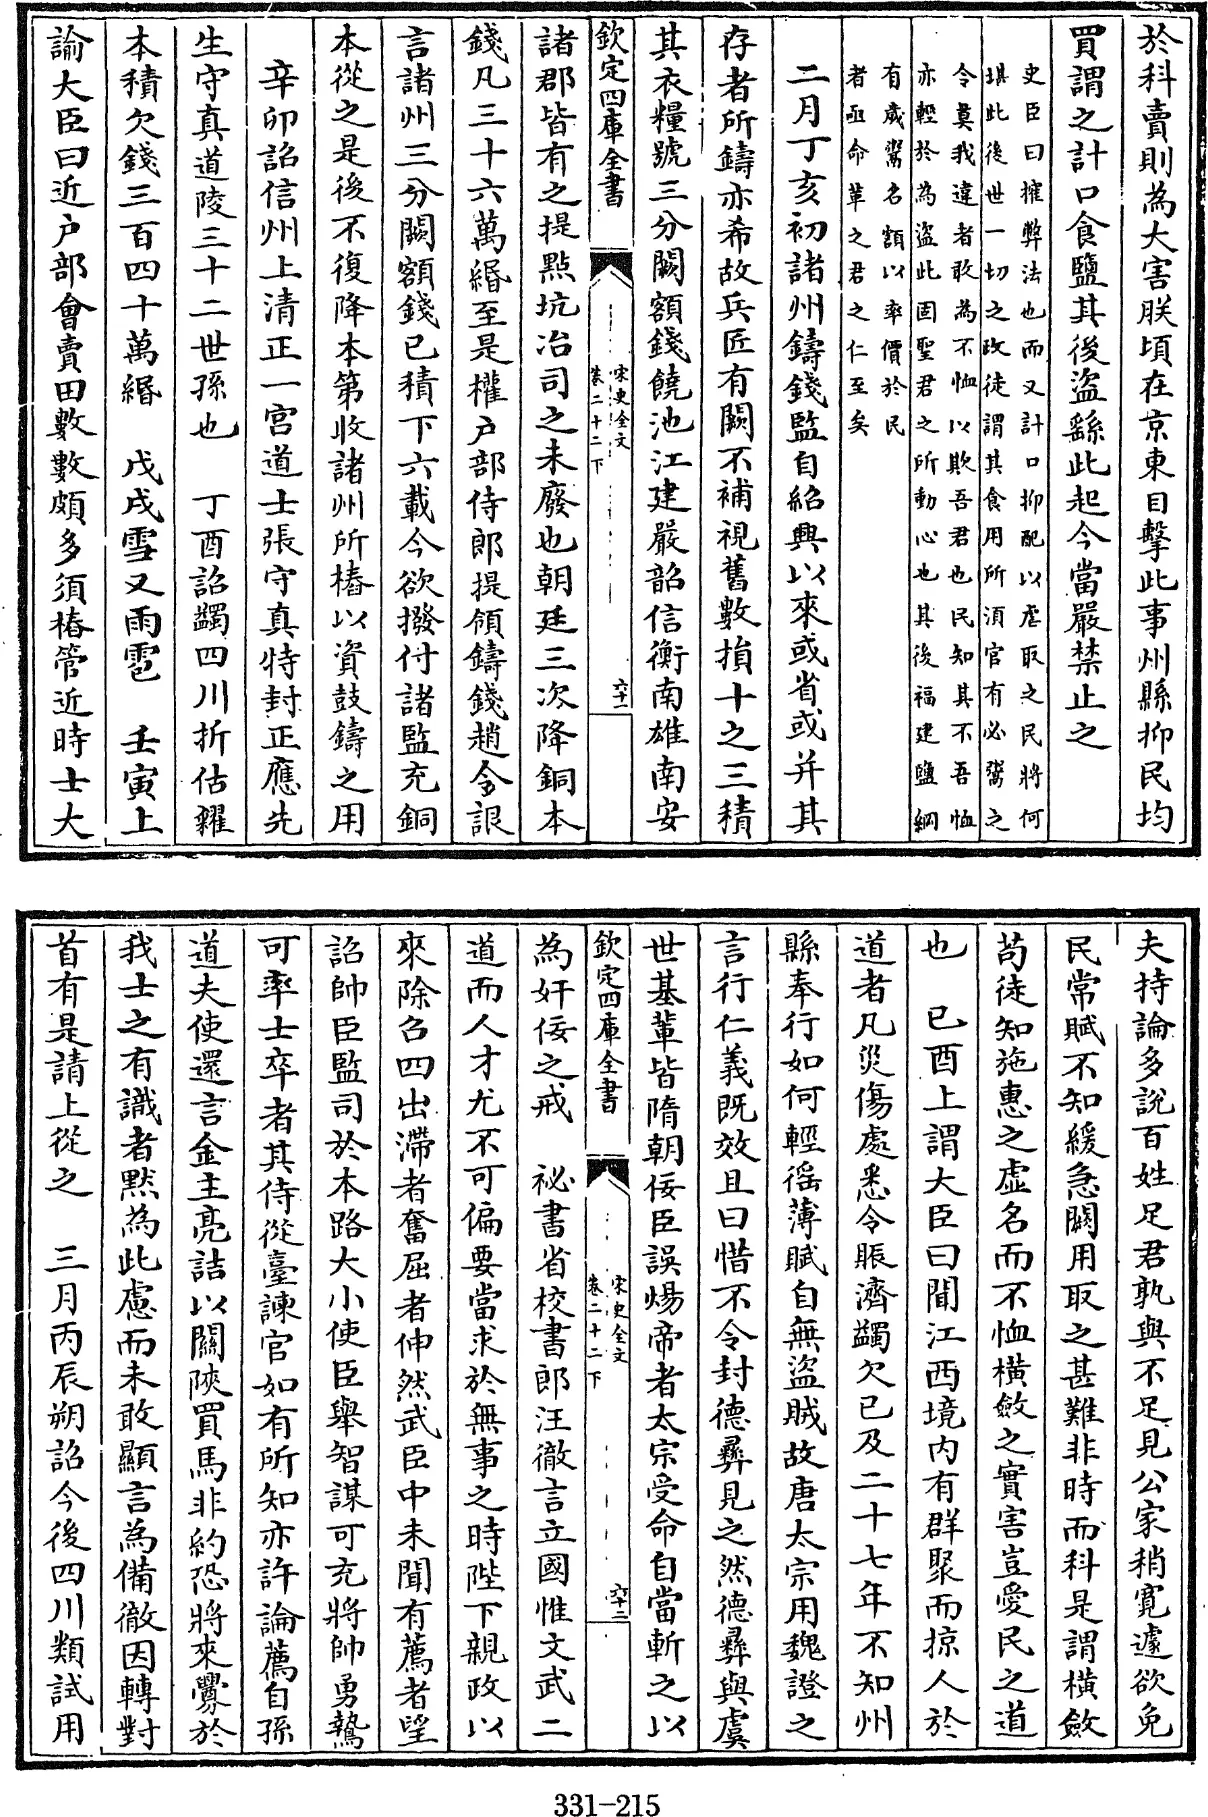 於科賣則為大害朕頃在京東目擊此事州縣抑民均
買謂之計口食鹽其後盜繇此起今當嚴禁止之
史臣曰榷弊法也而又計口抑配以虐取之民將何
堪此後世一切之政徒謂其食用所須官有必鬻之
令莫我違者敢為不恤以欺吾君也民知其不吾恤
亦輕於為盜此固聖君之所動心也其後福建鹽綱
有歲鬻名額以率價於民
者亟命革之君之仁至矣
二月丁亥初諸州鑄錢監自紹興以來或省或并其
存者所鑄亦希故兵匠有闕不補視舊數損十之三積
其衣糧號三分闕額錢饒池江建嚴韶信衡南雄南安
欽定四庫全書
宋史全文
卷二十二下
六十一
諸郡皆有之提點坑冶司之未廢也朝廷三次降銅本
錢凡三十六萬緡至是權户部侍郎提領鑄錢趙令詪
言諸州三分闕額錢已積下六載今欲撥付諸監充銅
本從之是後不復降本第收諸州所樁以資鼓鑄之用
辛卯詔信州上清正一宮道士張守真特封正應先
生守真道陵三十二世孫也　丁酉詔蠲四川折估糴
本積欠錢三百四十萬緡　戊戌雪又雨雹　壬寅上
諭大臣曰近户部會賣田數數頗多須樁管近時士大
夫持論多說百姓足君孰與不足見公家稍寬遽欲免
民常賦不知緩急闕用取之甚難非時而科是謂橫斂
苟徒知施惠之虛名而不恤橫斂之實害豈愛民之道
也　己酉上謂大臣曰聞江西境内有群聚而掠人於
道者凡災傷處悉令賑濟蠲欠已及二十七年不知州
縣奉行如何輕徭薄賦自無盜賊故唐太宗用魏證之
言行仁義既效且曰惜不令封德彝見之然德彝與虞
世基輩皆隋朝佞臣誤煬帝者太宗受命自當斬之以
欽定四庫全書
宋史全文
卷二十二下
六十二
為奸佞之戒　祕書省校書郎汪徹言立國惟文武二
道而人才尤不可偏要當求於無事之時陛下親政以
來除召四出滯者奮屈者伸然武臣中未聞有薦者望
詔帥臣監司於本路大小使臣舉智謀可充將帥勇鷙
可率士卒者其侍從臺諫官如有所知亦許論薦自孫
道夫使還言金主亮詰以關陝買馬非約恐將來釁於
我士之有識者默為此慮而未敢顯言為備徹因轉對
首有是請上從之　三月丙辰朔詔今後四川類試用
331-215